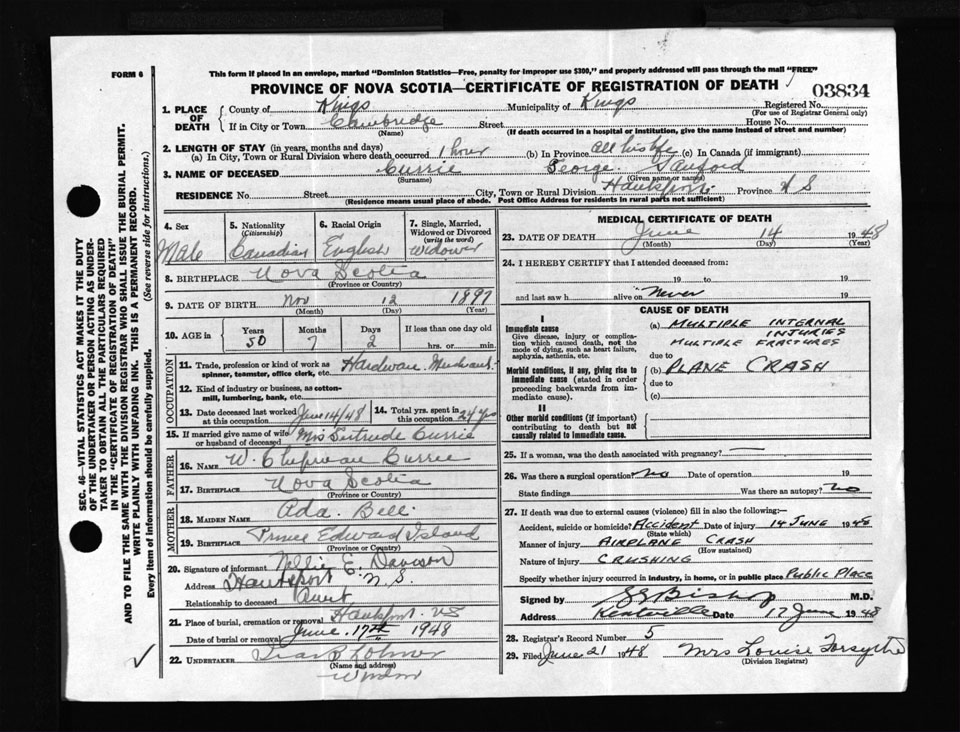 FORM 6
This form if placed in an envelope, marked "Dominion Statistics—Free, penalty for improper use $300," and properly addressed will pass through the mail "FREE"
PROVINCE OF NOVA SCOTIA—CERTIFICATE OF REGISTRATION OF DEATH
03834
1. PLACE OF DEATH
County of Kings Municipality of Kings Registered No.
(For use of Registrar General only)
If in City or Town Cambridge Street House No.
(Name) (If death occurred in a hospital or institution, give the name instead of street and number)
2. LENGTH OF STAY (in years, months and days)
(a) In City, Town or Rural Division where death occurred 1 hour (b) In Province all his life (c) In Canada (if immigrant)
3. NAME OF DECEASED Currie George Sanford
(Surname) (Given name or names)
RESIDENCE No. Street City, Town or Rural Division Hantsport Province N S
(Residence means usual place of abode. Post Office Address for residents in rural parts not sufficient)
4. Sex
Male
5. Nationality
(Citizenship)
Canadian
6. Racial Origin
English
7. Single, Married, Widowed or Divorced
(write the word)
Widower
8. BIRTHPLACE Nova Scotia
(Province or Country)
9. DATE OF BIRTH Nov 12 1897
(Month) (Day) (Year)
10. AGE in Years Months Days If less than one day old
50 7 2 hrs. or min.
OCCUPATION
11. Trade, profession or kind of work as Hardware Merchant
spinner, teamster, office clerk, etc.
12. Kind of industry or business, as cotton-
mill, lumbering, bank, etc.
13. Date deceased last worked at this occupation June 14/48
14. Total yrs. spent in this occupation 24 yrs
15. If married give name of wife or husband of deceased Mrs Gertrude Currie
FATHER
16. NAME W. Chipman Currie
17. BIRTHPLACE Nova Scotia
(Province or Country)
MOTHER
18. MAIDEN NAME Ada Bell
19. BIRTHPLACE Prince Edward Island
(Province or Country)
20. Signature of informant Nellie E. Davison
Address Hantsport N.S.
Relationship to deceased Aunt
21. Place of burial, cremation or removal Hantsport N S
Date of burial or removal June 17th 1948
22. UNDERTAKER
(Name and address)
Windsor
MEDICAL CERTIFICATE OF DEATH
23. DATE OF DEATH June 14 1948
(Month) (Day) (Year)
24. I HEREBY CERTIFY that I attended deceased from:
19 to 19
and last saw h alive on Never 19
CAUSE OF DEATH
I
Immediate cause
Give disease, injury or complication which caused death, not the mode of dying, such as heart failure, asphyxia, asthenia, etc.
(a) MULTIPLE INTERNAL
INJURIES
MULTIPLE FRACTURES
due to
Morbid conditions, if any, giving rise to immediate cause (stated in order proceeding backwards from immediate cause).
(b) PLANE CRASH
due to
(c)
II
Other morbid conditions (if important) contributing to death but not causally related to immediate cause.
25. If a woman, was the death associated with pregnancy? —
26. Was there a surgical operation? no Date of operation 19
State findings Was there an autopsy? no
27. If death was due to external causes (violence) fill in also the following:
Accident, suicide or homicide? Accident Date of injury 14 JUNE 1948
(State which)
Manner of injury AIRPLANE CRASH
(How sustained)
Nature of injury CRUSHING
Specify whether injury occurred in industry, in home, or in public place Public Place
Signed by Bishop M.D.
Address Kentville Date 17 June 1948
28. Registrar's Record Number 5
29. Filed June 21 1948 Mrs Louise Forsythe
(Division Registrar)
SEC. 46—VITAL STATISTICS ACT MAKES IT THE DUTY
OF THE UNDERTAKER OR PERSON ACTING AS UNDER-
TAKER TO OBTAIN ALL THE PARTICULARS REQUIRED
IN THE "CERTIFICATE OF REGISTRATION OF DEATH"
AND TO FILE THE SAME WITH THE DIVISION REGISTRAR WHO SHALL ISSUE THE BURIAL PERMIT.
WRITE PLAINLY WITH UNFADING INK. THIS IS A PERMANENT RECORD.
Every item of information should be carefully supplied. (See reverse side for instructions.)